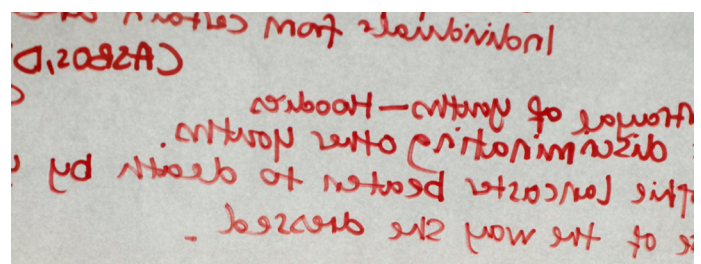 Individuals from certain
(ASBOS, D
trayal of youths – Hoodies
discriminating other youths.
phie Lancaster beaten to death by
se of the way she dressed -